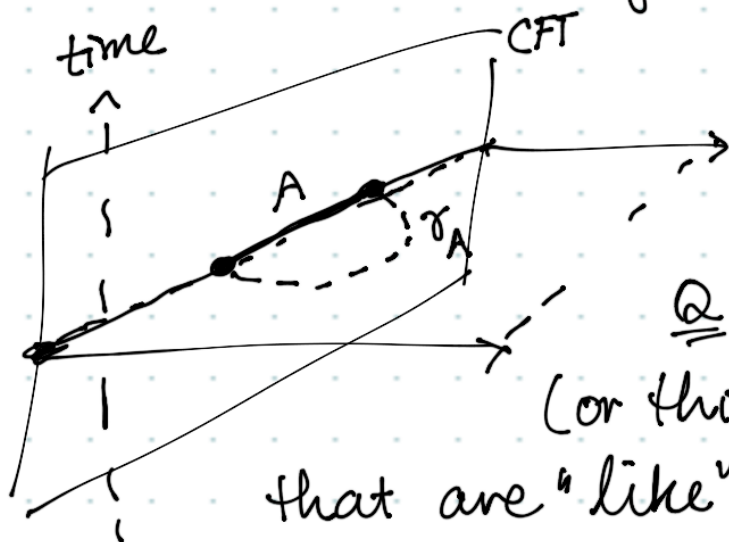 time
CFT
A
γ_A
Q
(or thi
that are "like"